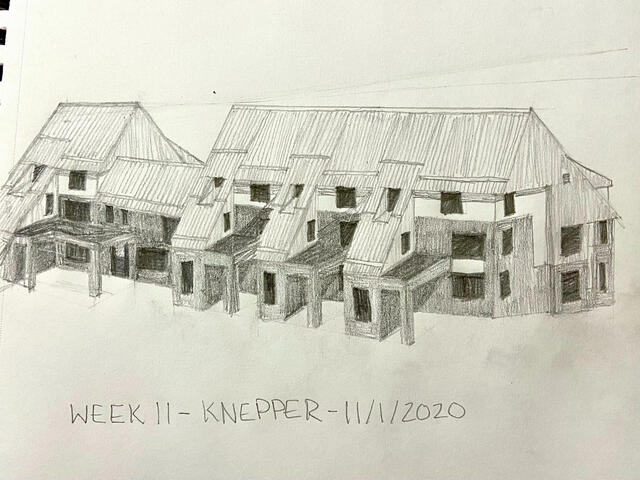 WEEK 11 - KNEPPER - 11/1/2020